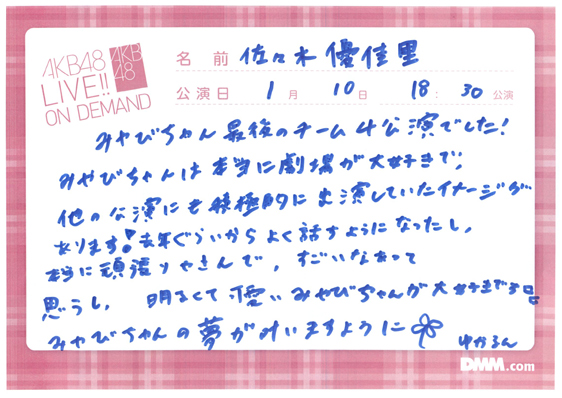 AKB48
LIVE!!
ON DEMAND
AKB
48
名前 佐々木優佳里
公演日 1月 10日 18:30公演
みやびちゃん最後のチーム4公演でした!
みやびちゃんは本当に劇場が大好きで、
他の公演にも積極的に出演していたイメージが
あります!去年ぐらいからよく話すようになったし、
本当に頑張りやさんで、すごいなあって
思うし、明るくて可愛いみやびちゃんが大好きです
みやびちゃんの夢が叶いますように
ゆかるん
DMM.com